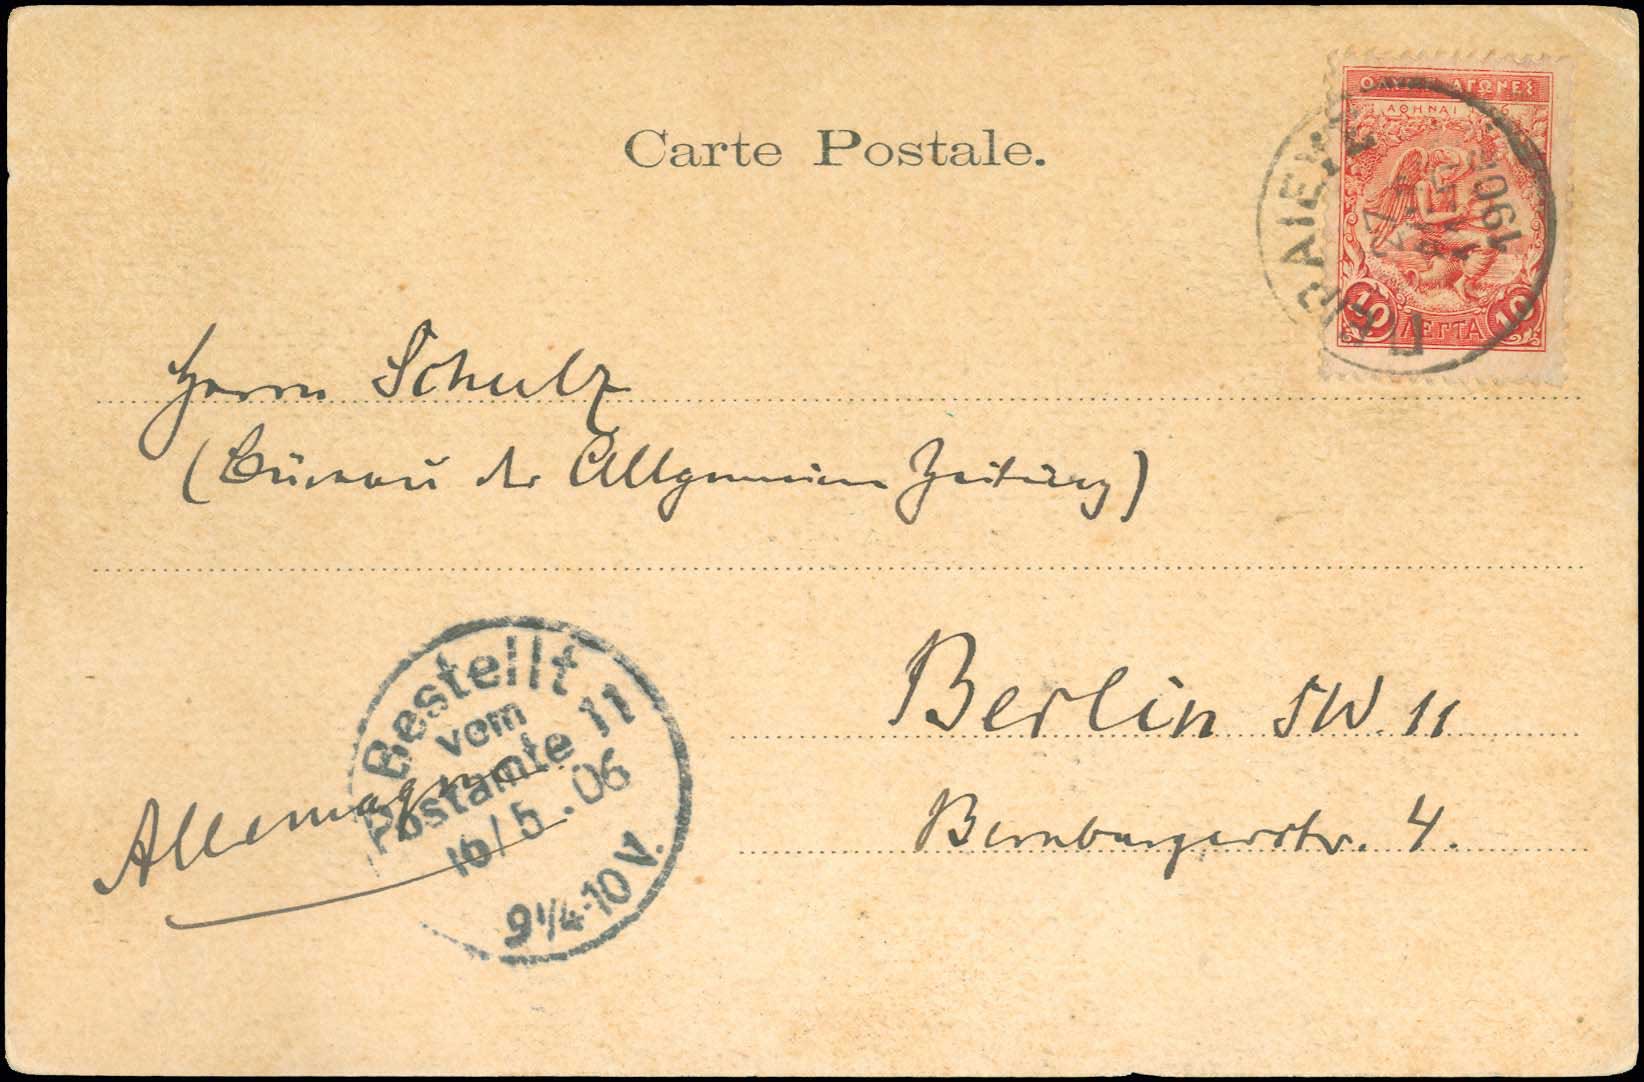 Carte Postale.
ΟΛΥΜ ΑΓΩΝΕΣ
ΑΘΗΝΑΙ
10 ΛΕΠΤΑ 10
ΠΕΙΡΑΙΕΥΣ
1906
Herrn Schulz
(Büreau der Allgemeinen Zeitung)
Berlin SW. 11
Bernburgerstr. 4.
Allemagne
Bestellt
vom
Postamte 11
16/5.06
9¼-10V.